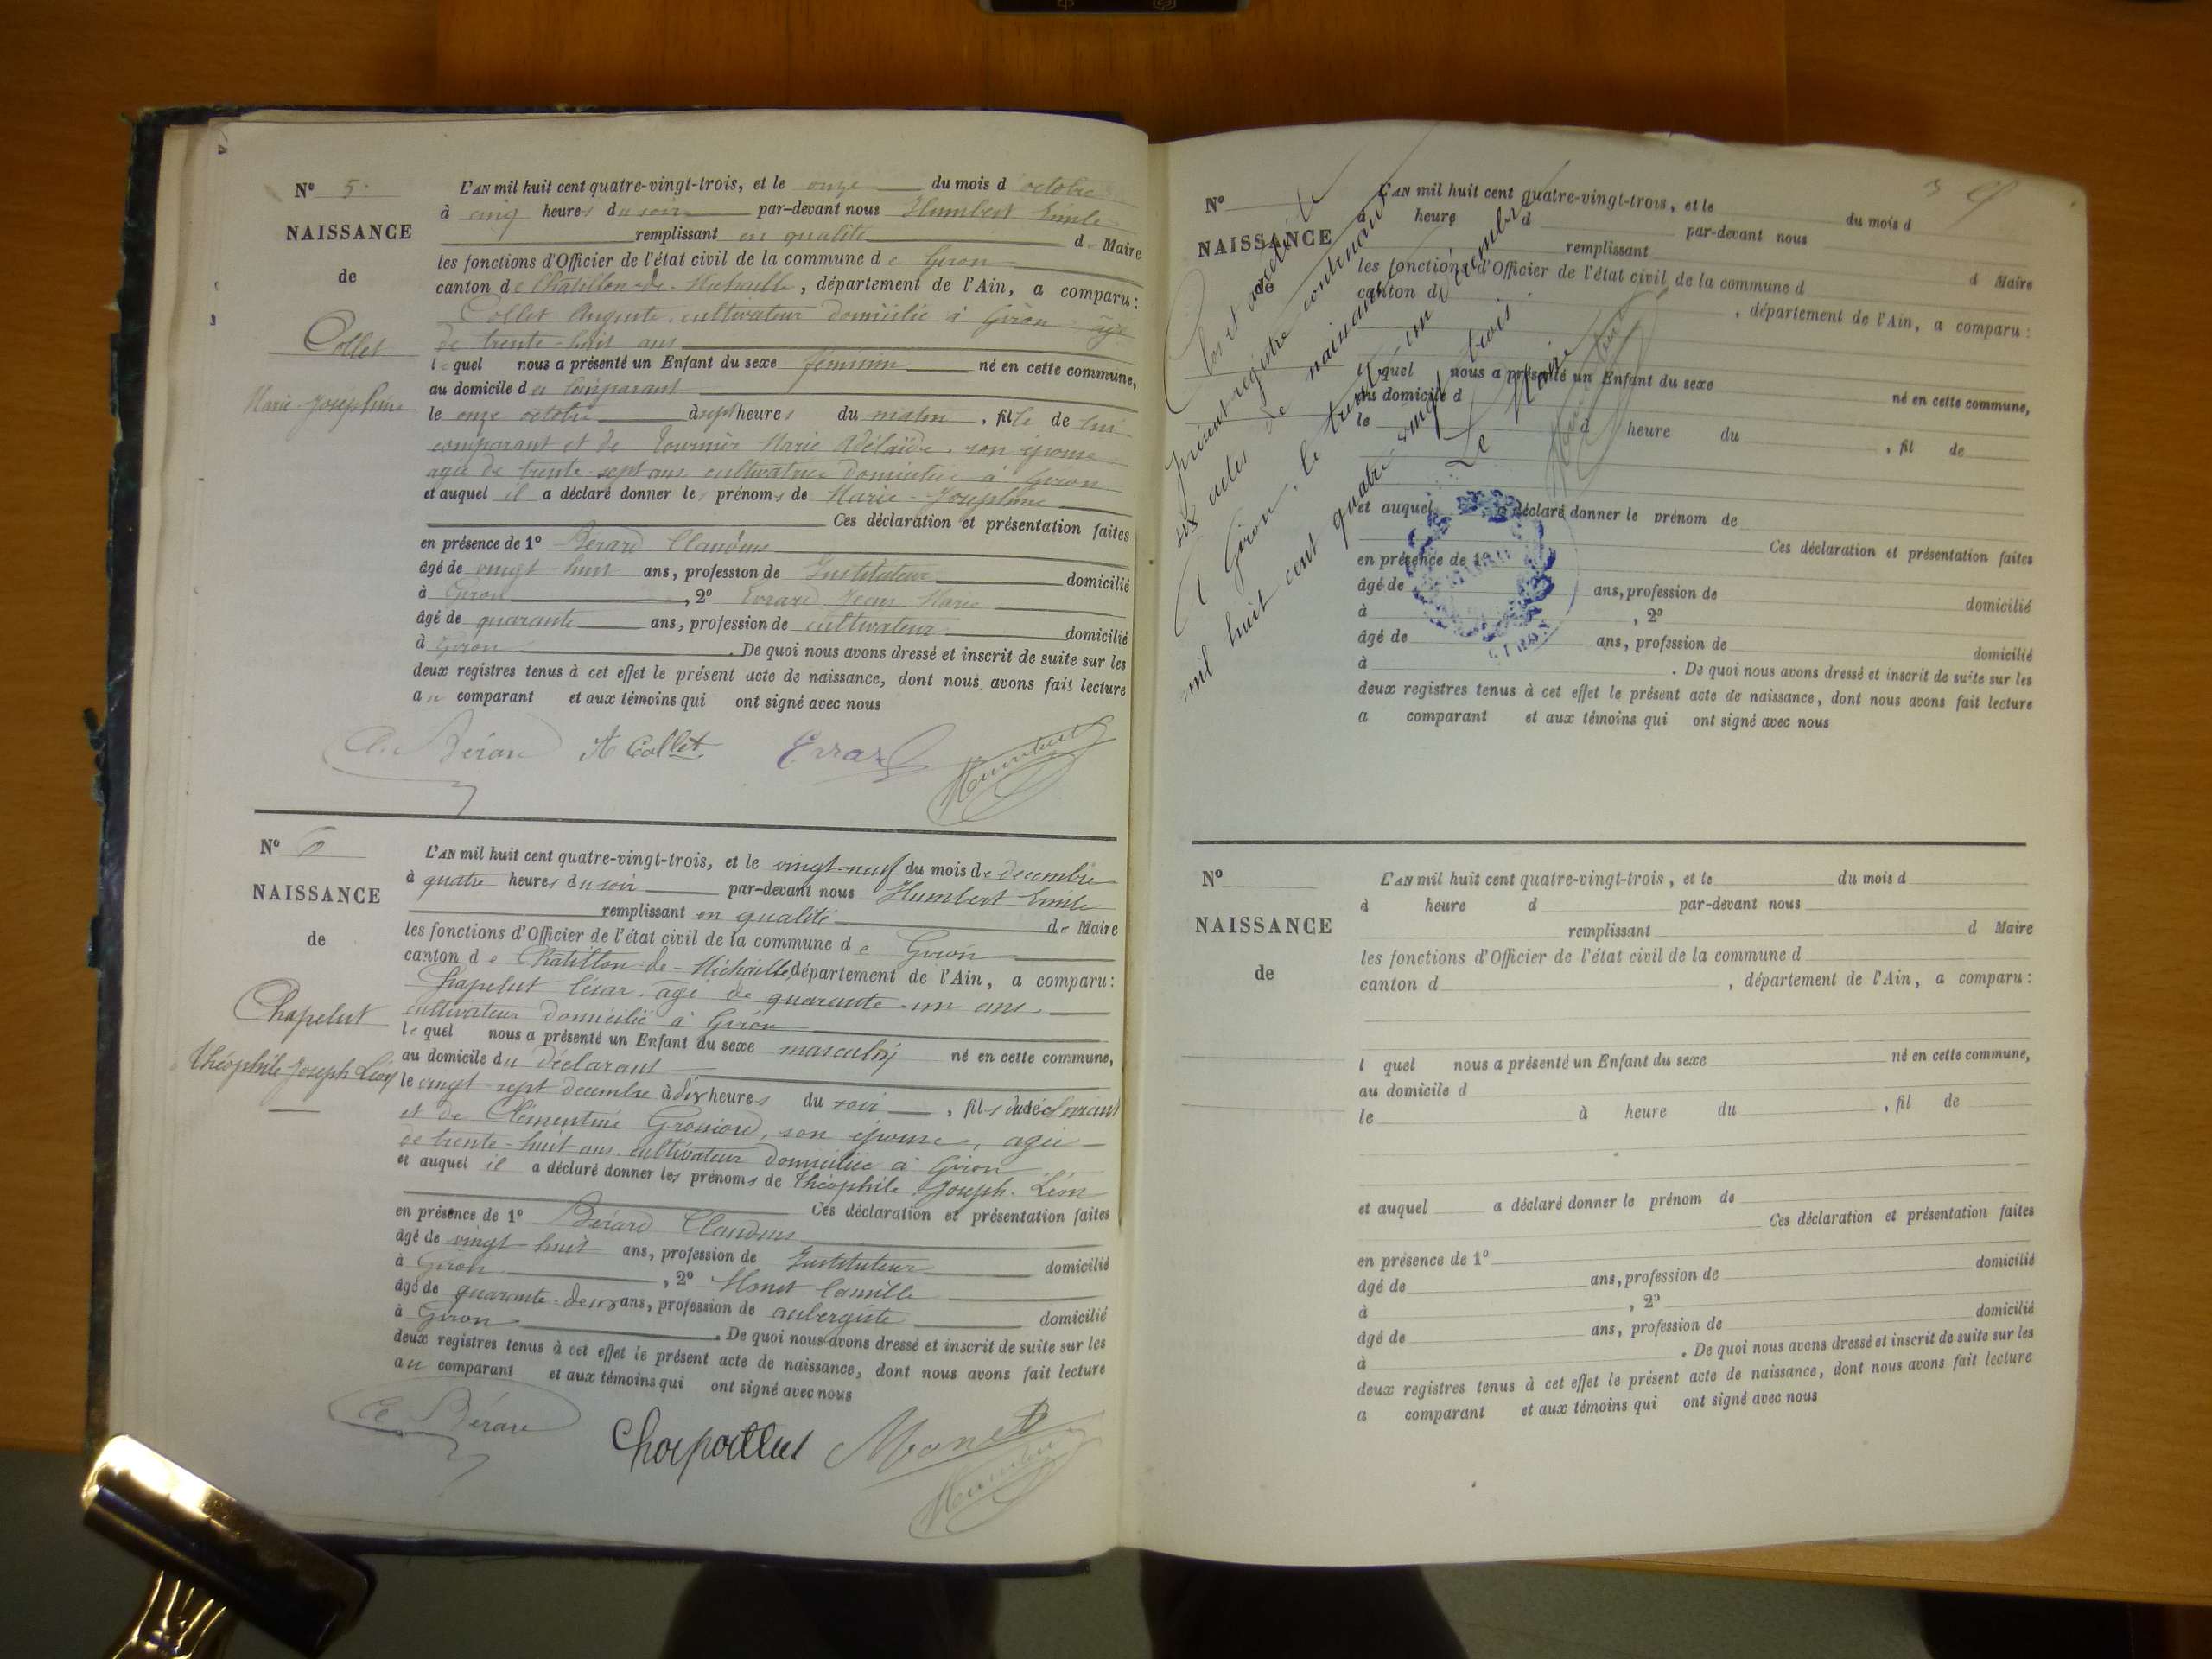 N° 5
NAISSANCE
de
Collet
Marie-Joséphine
L'AN mil huit cent quatre-vingt-trois, et le onze du mois d octobre
à cinq heures du soir par-devant nous Humbert Emile
remplissant en qualité de Maire
les fonctions d'Officier de l'état civil de la commune de Giron
canton de Chatillon-de-Michaille, département de l'Ain, a comparu:
Collet Auguste cultivateur domicilié à Giron âgé
de trente-huit ans
lequel nous a présenté un Enfant du sexe féminin né en cette commune,
au domicile du comparant
le onze octobre à sept heures du matin, fille de lui
comparant et de Tournier Marie Adélaïde, son épouse
agée de trente-sept ans cultivatrice domiciliée à Giron
et auquel il a déclaré donner les prénoms de Marie-Joséphine
Ces déclaration et présentation faites
en présence de 1° Bérard Claudius
âgé de vingt-huit ans, profession de Instituteur domicilié
à Giron, 2° Evrard Jean Marie
âgé de quarante ans, profession de cultivateur domicilié
à Giron. De quoi nous avons dressé et inscrit de suite sur les
deux registres tenus à cet effet le présent acte de naissance, dont nous avons fait lecture
au comparant et aux témoins qui ont signé avec nous
Cl. Bérard A Collet Evrard Humbert
N° 6
NAISSANCE
de
Chapelut
Théophile Joseph Léon
L'AN mil huit cent quatre-vingt-trois, et le vingt-neuf du mois de décembre
à quatre heures du soir par-devant nous Humbert Emile
remplissant en qualité de Maire
les fonctions d'Officier de l'état civil de la commune de Giron
canton de Chatillon-de-Michaille, département de l'Ain, a comparu:
Chapelut César, agé de quarante-un ans,
cultivateur domicilié à Giron
lequel nous a présenté un Enfant du sexe masculin né en cette commune,
au domicile du déclarant
le vingt-sept décembre à dix heures du soir, fils du déclarant
et de Clémentine son épouse, agée
de trente-huit ans, cultivateur domiciliée à Giron
et auquel il a déclaré donner les prénoms de Théophile Joseph Léon
Ces déclaration et présentation faites
en présence de 1° Bérard Claudius
âgé de vingt-huit ans, profession de Instituteur domicilié
à Giron, 2° Monet Camille
âgé de quarante-deux ans, profession de aubergiste domicilié
à Giron. De quoi nous avons dressé et inscrit de suite sur les
deux registres tenus à cet effet le présent acte de naissance, dont nous avons fait lecture
au comparant et aux témoins qui ont signé avec nous
Cl. Bérard Chapellut Monet
Humbert
N°
NAISSANCE
de
L'AN mil huit cent quatre-vingt-trois, et le du mois d
à heure d par-devant nous
remplissant d Maire
les fonctions d'Officier de l'état civil de la commune d
canton d , département de l'Ain, a comparu:
l quel nous a présenté un Enfant du sexe né en cette commune,
au domicile d
le à heure du , fil de
et auquel a déclaré donner le prénom de
Ces déclaration et présentation faites
en présence de 1°
âgé de ans, profession de domicilié
à , 2°
âgé de ans, profession de domicilié
à . De quoi nous avons dressé et inscrit de suite sur les
deux registres tenus à cet effet le présent acte de naissance, dont nous avons fait lecture
a comparant et aux témoins qui ont signé avec nous
Clos et arrêté le
présent registre contenant
six actes de naissances
A Giron, le trente-un décembre
mil huit cent quatre vingt trois
Le Maire
Humbert
GIRON
N°
NAISSANCE
de
L'AN mil huit cent quatre-vingt-trois, et le du mois d
à heure d par-devant nous
remplissant d Maire
les fonctions d'Officier de l'état civil de la commune d
canton d , département de l'Ain, a comparu:
l quel nous a présenté un Enfant du sexe né en cette commune,
au domicile d
le à heure du , fil de
et auquel a déclaré donner le prénom de
Ces déclaration et présentation faites
en présence de 1°
âgé de ans, profession de domicilié
à , 2°
âgé de ans, profession de domicilié
à . De quoi nous avons dressé et inscrit de suite sur les
deux registres tenus à cet effet le présent acte de naissance, dont nous avons fait lecture
a comparant et aux témoins qui ont signé avec nous